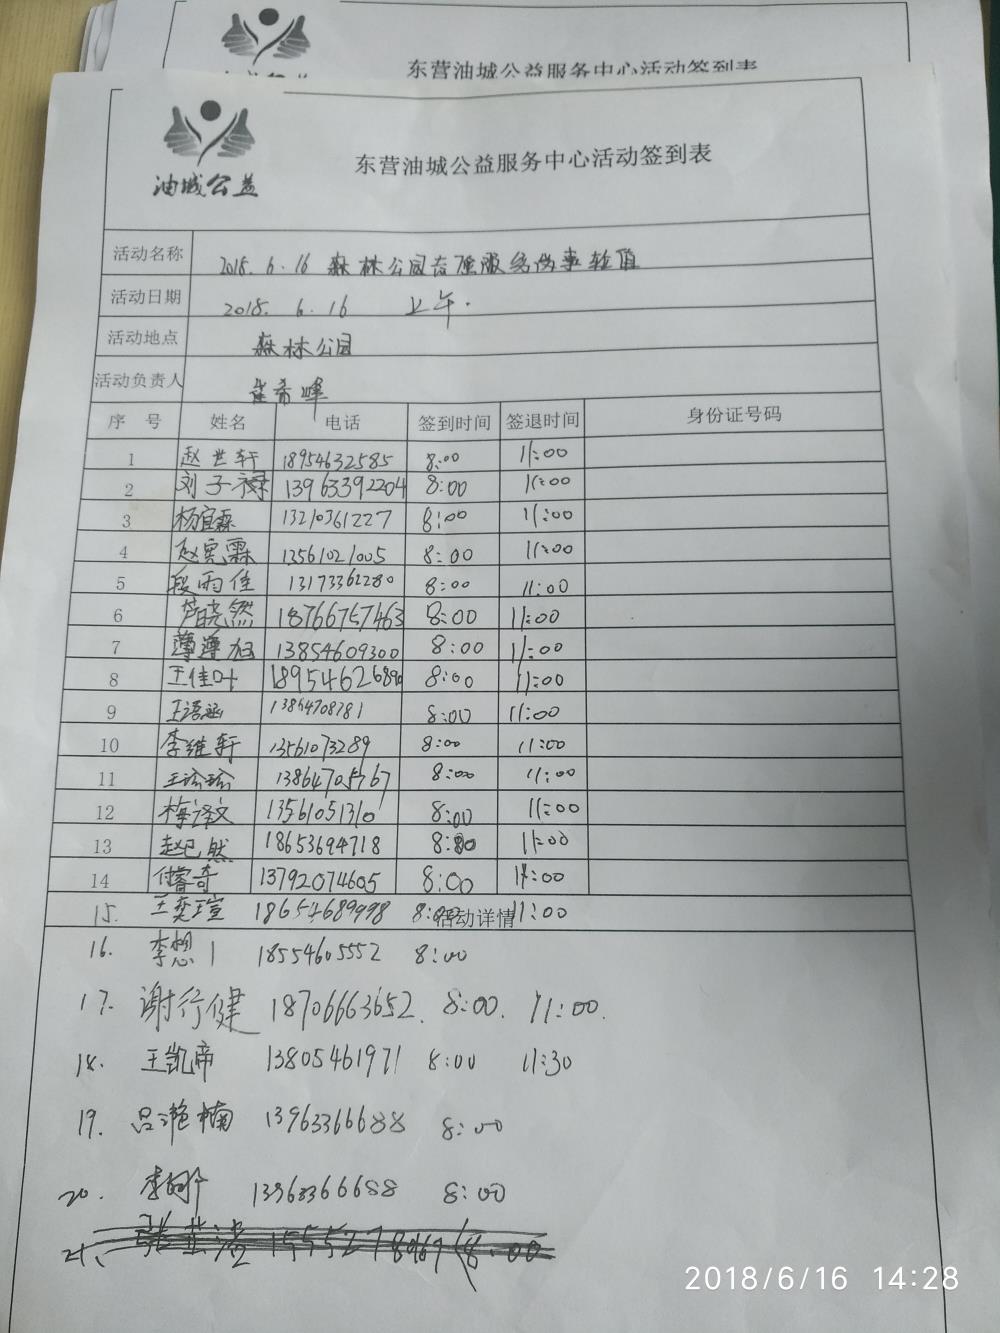 东营油城公益服务中心活动签到表
油城公益
东营油城公益服务中心活动签到表
活动名称 2018.6.16 森林公园志愿服务 轮值
活动日期 2018. 6. 16 上午.
活动地点 森林公园
活动负责人 崔希峰
序 号 姓名 电话 签到时间 签退时间 身份证号码
1 赵世轩 18954632585 8:00 11:00
2 刘子禄 13963392204 8:00 11:00
3 杨宜霖 13210361227 8:00 11:00
4 赵宪霖 13561021005 8:00 11:00
5 段雨佳 13173362280 8:00 11:00
6 芦晓然 18766757463 8:00 11:00
7 13854609300 8:00 11:00
8 王佳叶 18954626890 8:00 11:00
9 王语涵 13864708781 8:00 11:00
10 李维轩 13561073289 8:00 11:00
11 王珍珍 13864705767 8:00 11:00
12 梅译文 13561051310 8:00 11:00
13 赵已然 18653694718 8:00 11:00
14 付睿奇 13792074605 8:00 11:00
15. 王奕瑄 18654689998 8:00 活动详情 11:00
16. 李想 18554605552 8:00
17. 谢行健 18706663652. 8:00. 11:00.
18. 王凯帝 13805461971 8:00 11:30
19. 吕滟楠 13963366688 8:00
20. 13963366688 8:00
21、 8:00
2018/6/16 14:28